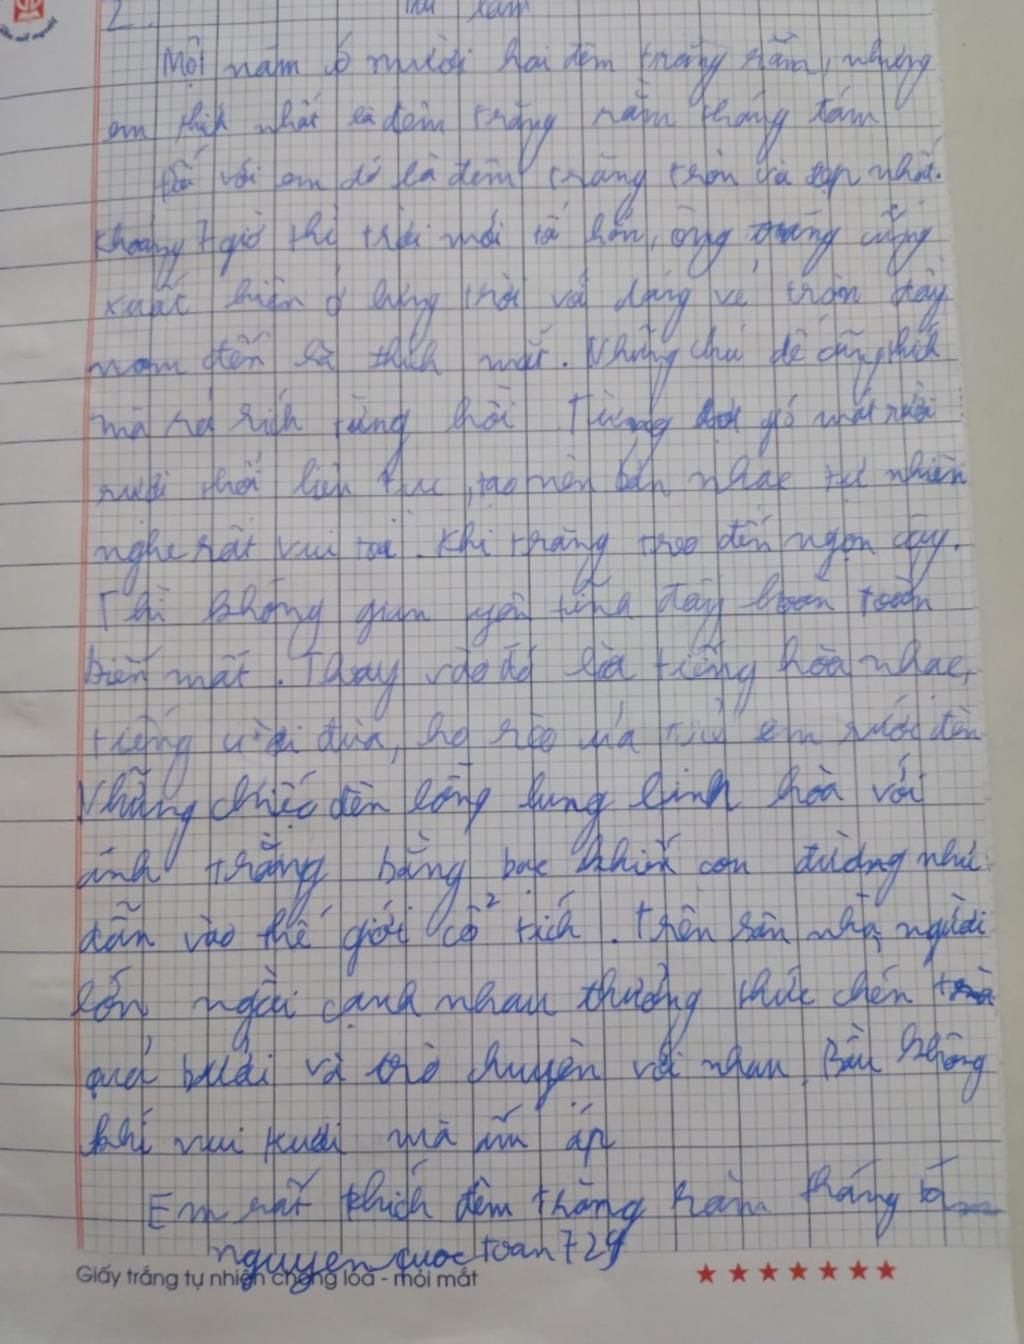 2.
Một năm có mười hai đêm trăng rằm, nhưng
em thích nhất là đêm trăng rằm tháng tám
với em đó là đêm trăng tròn và đẹp nhất.
Khoảng 7 giờ thì trời mới tối hẳn, ông trăng cũng
xuất hiện ở lưng trời với dáng vẻ tròn đầy
nom đến là thích mắt. Những chú dế cũng thích
mà ra rích từng hồi Từng đợt gió mát rười
rượi thổi liên tục, tạo nên bản nhạc tự nhiên
nghe rất vui tai. Khi trăng treo đến ngọn cây.
Thì không gian yên tĩnh đấy hoàn toàn
biến mất. Thay vào đó là tiếng hòa nhạc,
tiếng cười đùa, hò reo của em rước đèn
Những chiếc đèn lồng lung linh hòa với
ánh trăng bàng bạc khiến con đường như
dẫn vào thế giới cổ tích. Trên sân nhà, người
lớn ngồi cạnh nhau thưởng thức chén trà
quả bưởi và trò chuyện với nhau Bầu không
khí vui tươi mà ấm áp
Em rất thích đêm trăng rằm tháng tám
nguyen quoc toan 729
Giấy trắng tự nhiên chống lóa - mỏi mắt